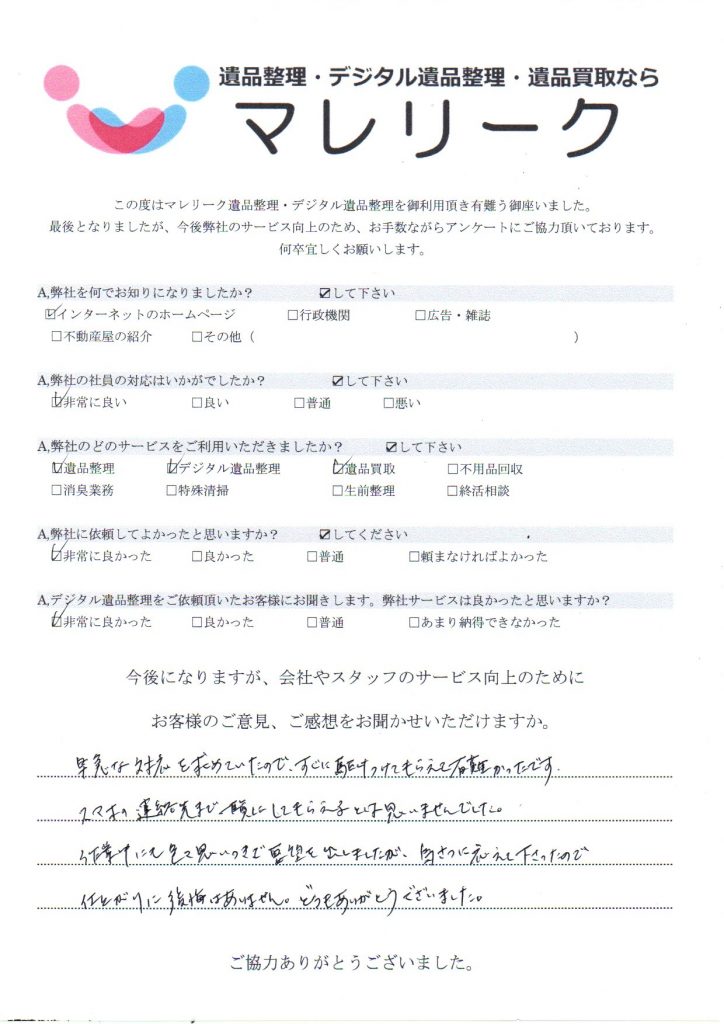 遺品整理・デジタル遺品整理・遺品買取なら
マレリーク
この度はマレリーク遺品整理・デジタル遺品整理を御利用頂き有難う御座いました。
最後となりましたが、今後弊社のサービス向上のため、お手数ながらアンケートにご協力頂いております。
何卒宜しくお願いします。
A,弊社を何でお知りになりましたか？ ☑して下さい
☑インターネットのホームページ □行政機関 □広告・雑誌
□不動産屋の紹介 □その他（ ）
A,弊社の社員の対応はいかがでしたか？ ☑して下さい
☑非常に良い □良い □普通 □悪い
A,弊社のどのサービスをご利用いただきましたか？ ☑して下さい
☑遺品整理 ☑デジタル遺品整理 ☑遺品買取 □不用品回収
□消臭業務 □特殊清掃 □生前整理 □終活相談
A,弊社に依頼してよかったと思いますか？ ☑してください
☑非常に良かった □良かった □普通 □頼まなければよかった
A,デジタル遺品整理をご依頼頂いたお客様にお聞きします。弊社サービスは良かったと思いますか？
☑非常に良かった □良かった □普通 □あまり納得できなかった
今後になりますが、会社やスタッフのサービス向上のために
お客様のご意見、ご感想をお聞かせいただけますか。
早急な対応を求めていたので、すぐに駆けつけてもらえて有難かったです。
スマホの連絡先まで一覧にしてもらえるとは思いませんでした。
作業中にも色々思いつきで要望を出しましたが、向さつに応えて下さったので
仕上がりに後悔はありません。どうもありがとうございました。
ご協力ありがとうございました。